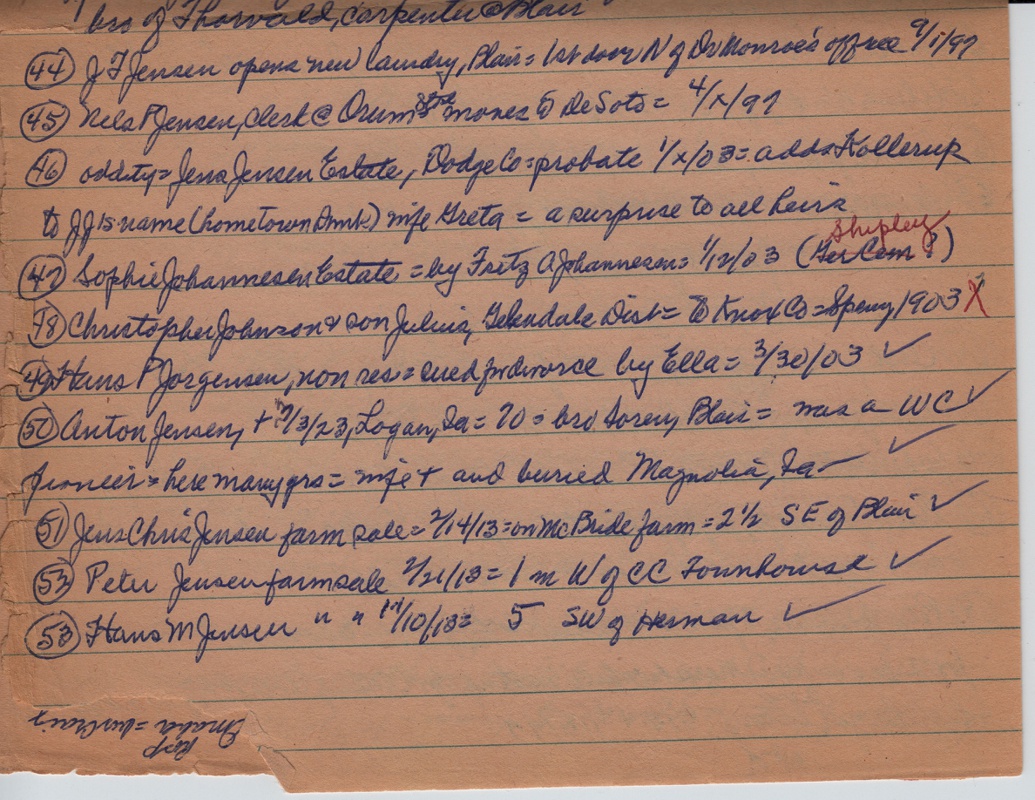 bro of Thorvald, carpenter @ Blair
(44) J F Jensen opens new laundry, Blair = 1st door N of Dr Monroe's office 9/1/97
(45) Nels P Jensen, clerk @ Orum store moves to DeSoto = 4/x/97
(46) oddity = Jens Jensen Estate, Dodge Co = probate 1/x/03 = adds Hollerup
to JJ's name (hometown Dmrk) wife Greta = a surprise to all heirs
Shipley
(47) Sophie Johannesen Estate = by Fritz A Johannesen = 1/12/03 (Ger Cem ?)
(48) Christopher Johnson & son Julius, Dist = to Knox Co = 1903 X
(49) Hans P Jorgensen, non res = sued for divorce by Ella = 3/30/03 ✓
(50) Anton Jensen, + /3/23, Logan, Ia = 70 = bro Soren, Blair = was a WC ✓
pioneer = here many yrs = wife + and buried Magnolia, Ia ✓
(51) Jens Chris Jensen farm sale = 2/14/13 = on McBride farm = 2 1/2 SE of Blair ✓
(52) Peter Jensen farm sale 2/21/13 = 1 m W of CC Townhouse ✓
(53) Hans M Jensen " " /10/13 = 5 SW of Herman ✓
Omaha =